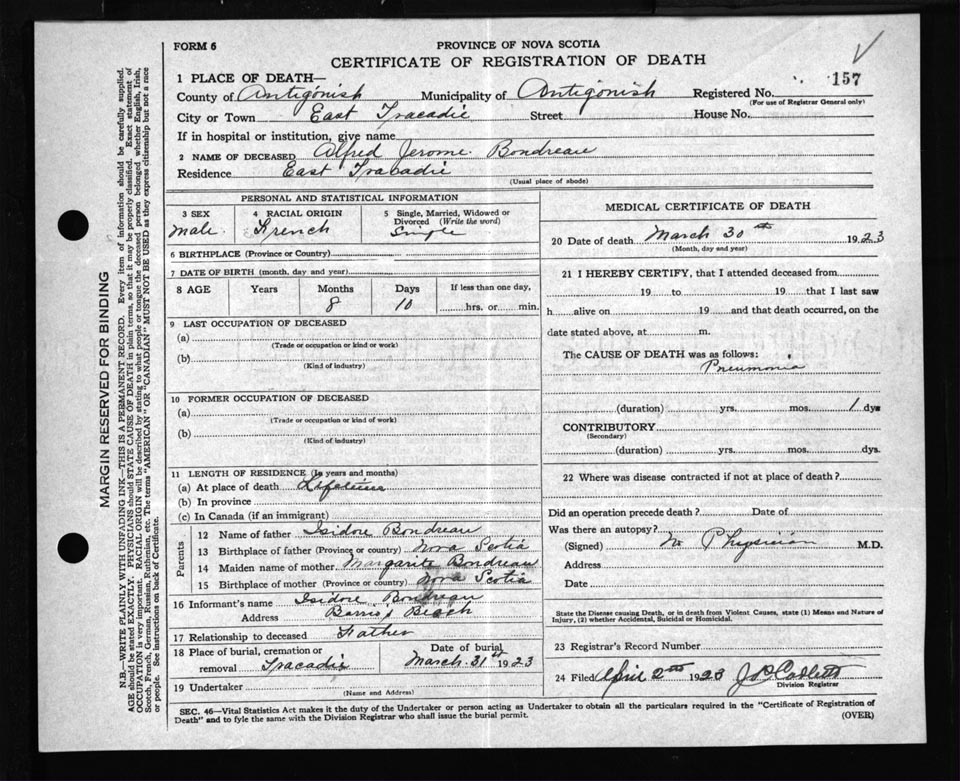 FORM 6
PROVINCE OF NOVA SCOTIA
CERTIFICATE OF REGISTRATION OF DEATH
157
1 PLACE OF DEATH—
County of Antigonish Municipality of Antigonish Registered No.
(For use of Registrar General only)
City or Town East Tracadie Street House No.
If in hospital or institution, give name
2 NAME OF DECEASED Alfred Jerome Bondreau
Residence East Trabadie
(Usual place of abode)
PERSONAL AND STATISTICAL INFORMATION
3 SEX
Male.
4 RACIAL ORIGIN
French
5 Single, Married, Widowed or Divorced (Write the word)
Single
6 BIRTHPLACE (Province or Country)
7 DATE OF BIRTH (month, day and year)
8 AGE Years Months Days If less than one day,
8 10 hrs. or min.
9 LAST OCCUPATION OF DECEASED
(a)
(Trade or occupation or kind or work)
(b)
(Kind of industry)
10 FORMER OCCUPATION OF DECEASED
(a)
(Trade or occupation or kind of work)
(b)
(Kind of industry)
11 LENGTH OF RESIDENCE (In years and months)
(a) At place of death Lifetime
(b) In province
(c) In Canada (if an immigrant)
Parents
12 Name of father Isidore Bondreau
13 Birthplace of father (Province or country) Nova Scotia
14 Maiden name of mother Margarite Bondreau
15 Birthplace of mother (Province or country) Nova Scotia
16 Informant's name Isidore Bondreau
Address Barrio Beach
17 Relationship to deceased Father
18 Place of burial, cremation or removal Tracadie
Date of burial
March 31st 1923
19 Undertaker
(Name and Address)
MEDICAL CERTIFICATE OF DEATH
20 Date of death March 30th 1923
(Month, day and year)
21 I HEREBY CERTIFY, that I attended deceased from
19 to 19 that I last saw
h alive on 19 and that death occurred, on the
date stated above, at m.
The CAUSE OF DEATH was as follows:
Pneumonia
(duration) yrs. mos. 1 dys
CONTRIBUTORY
(Secondary)
(duration) yrs. mos. dys.
22 Where was disease contracted if not at place of death?
Did an operation precede death? Date of
Was there an autopsy?
(Signed) No Physician M.D.
Address
Date
State the Disease causing Death, or in death from Violent Causes, state (1) Means and Nature of
Injury, (2) whether Accidental, Suicidal or Homicidal.
23 Registrar's Record Number
24 Filed April 2nd 1923
Division Registrar
SEC. 46—Vital Statistics Act makes it the duty of the Undertaker or person acting as Undertaker to obtain all the particulars required in the "Certificate of Registration of
Death" and to fyle the same with the Division Registrar who shall issue the burial permit.
(OVER)
MARGIN RESERVED FOR BINDING
N.B.—WRITE PLAINLY WITH UNFADING INK—THIS IS A PERMANENT RECORD. Every item of information should be carefully supplied.
AGE should be stated EXACTLY. PHYSICIANS should STATE CAUSE OF DEATH in plain terms, so that it may be properly classified. Exact statement of
OCCUPATION is very important. RACIAL ORIGIN will be described by stating to what people or tongue the deceased person belonged whether English, Irish,
Scotch, French, German, Russian, Ruthenian, etc. The terms "AMERICAN" OR "CANADIAN" MUST NOT BE USED as they express citizenship but not a race
or people. See instructions on back of Certificate.